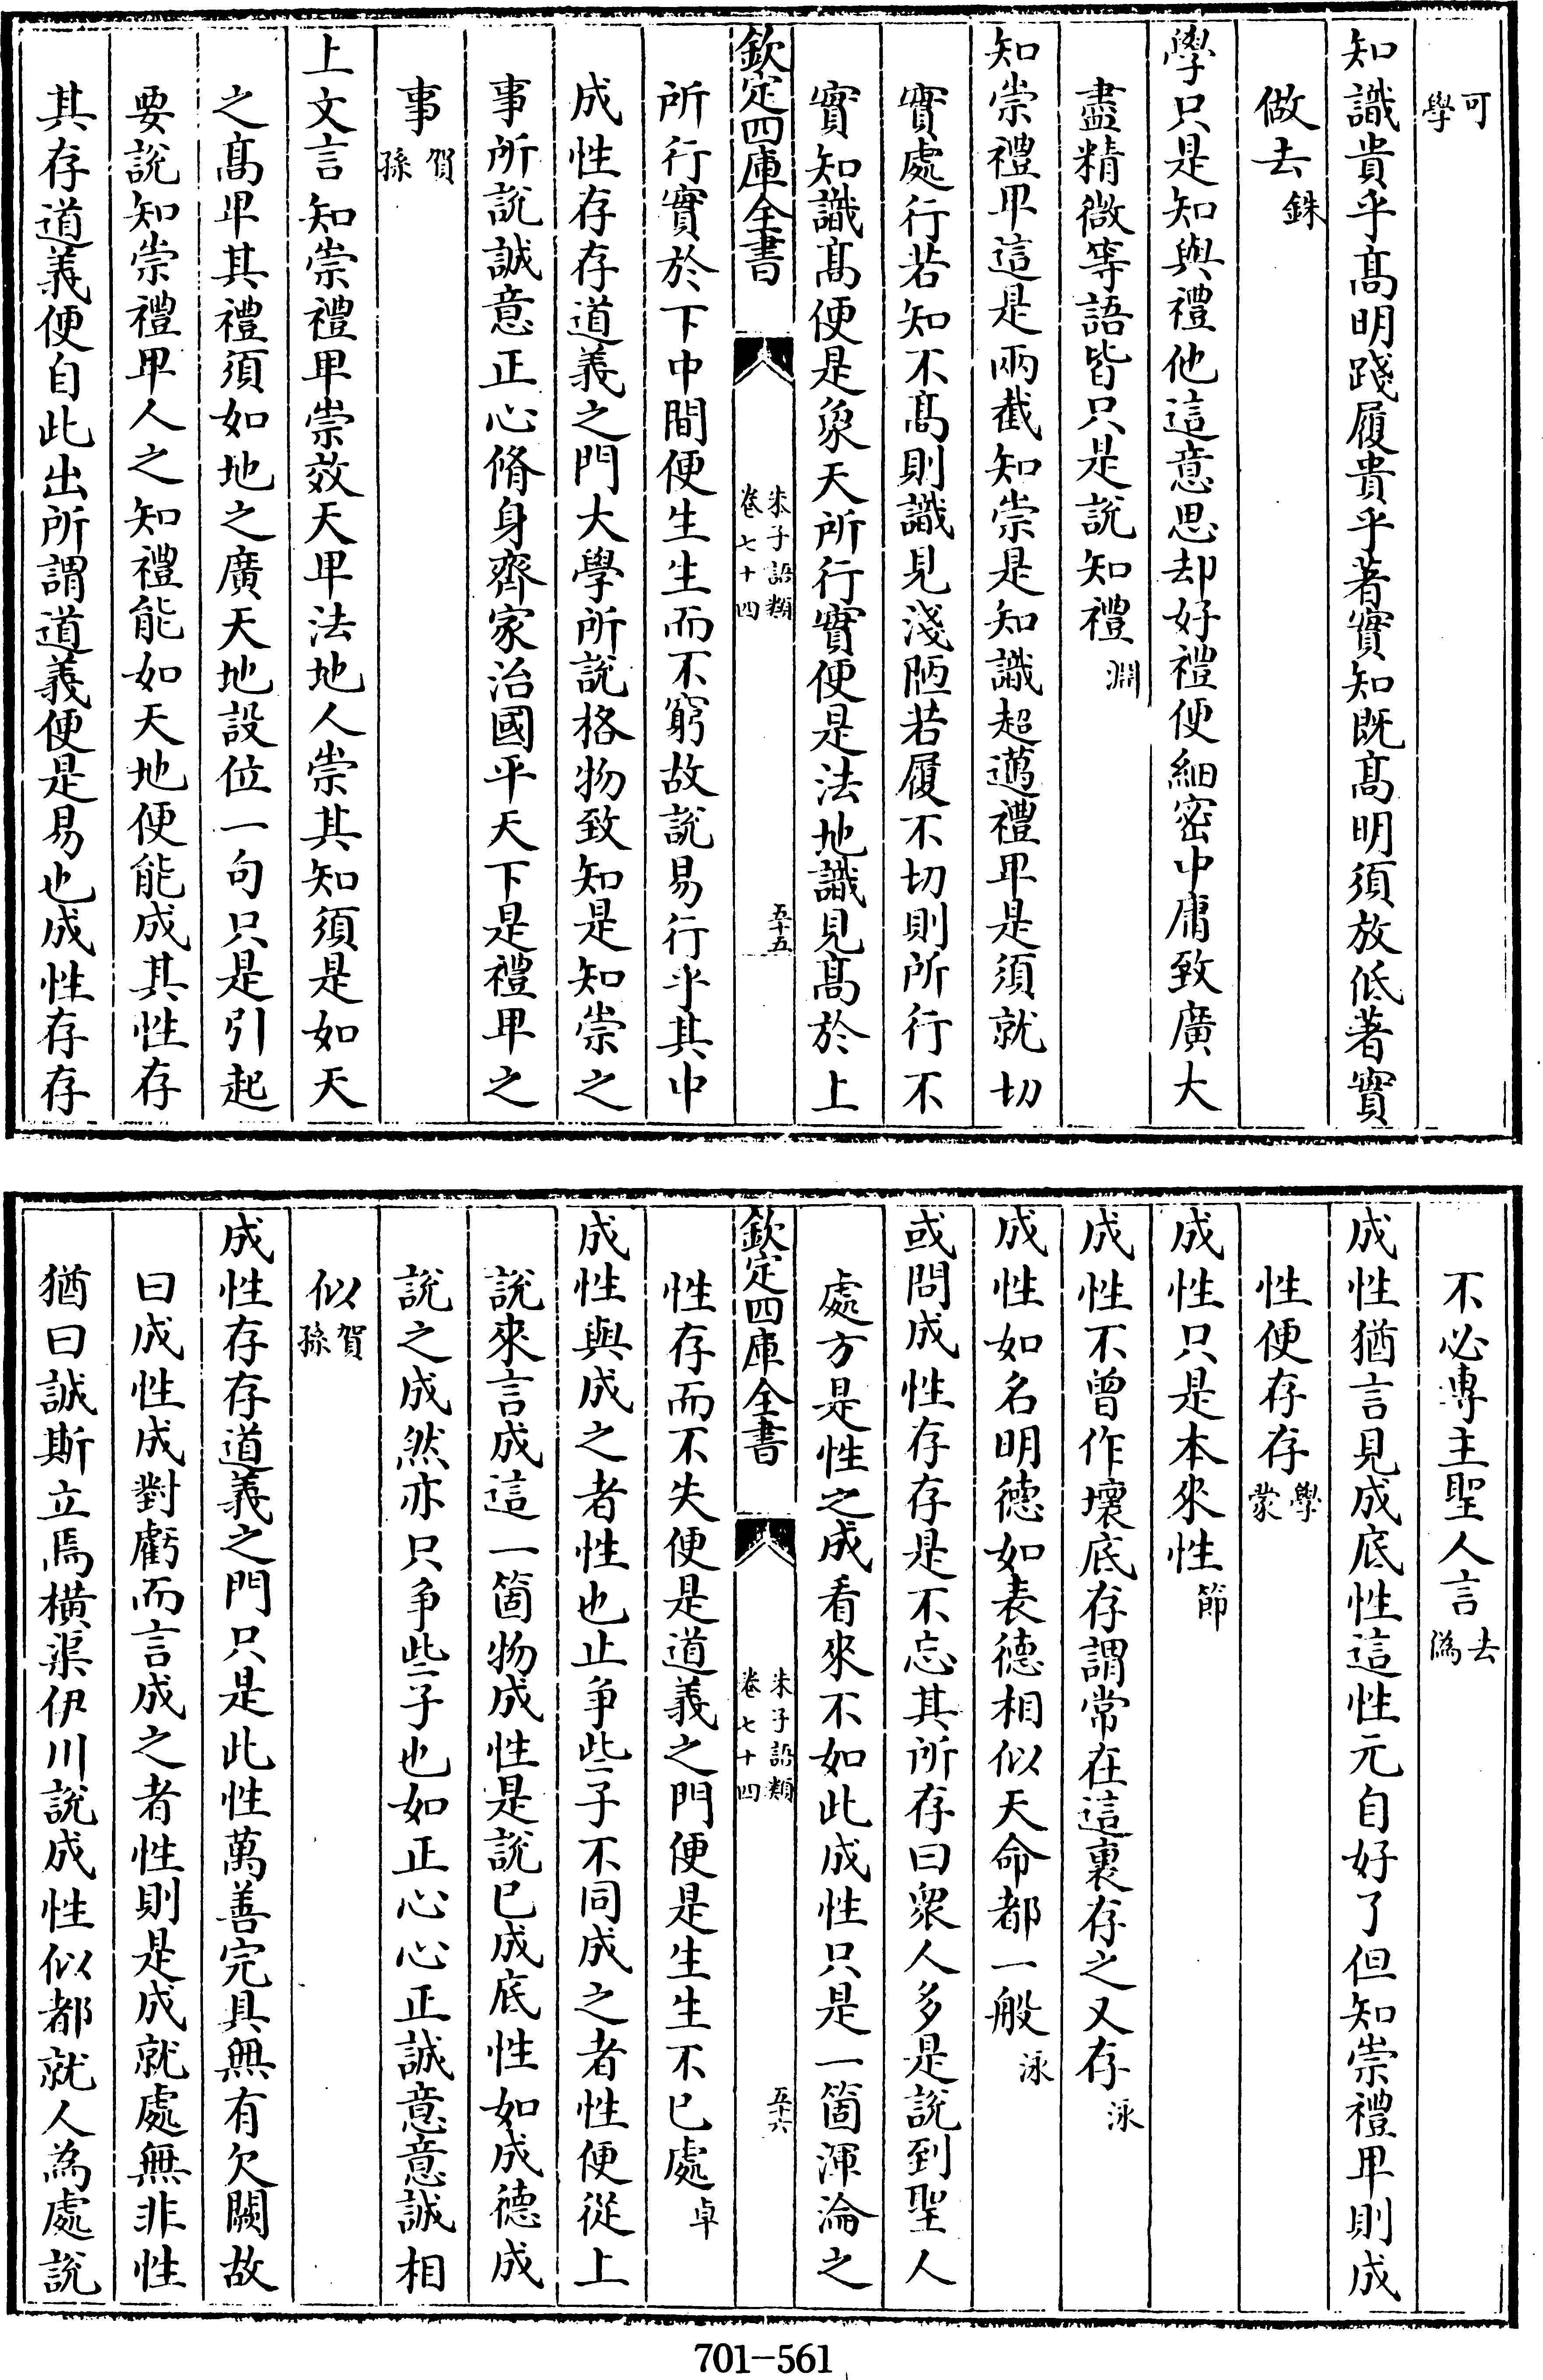 可學
知識貴乎髙明踐履貴乎著實知既髙明須放低著實
做去銖
學只是知與禮他這意思却好禮便細密中庸致廣大
盡精微等語皆只是説知禮淵
知崇禮卑這是兩截知崇是知識超邁禮卑是須就切
實處行若知不髙則識見淺陋若履不切則所行不
實知識髙便是象天所行實便是法地識見髙於上
欽定四庫全書
朱子語類
卷七十四
五十五
所行實於下中間便生生而不窮故説易行乎其中
成性存存道義之門大學所説格物致知是知崇之
事所説誠意正心脩身齊家治國平天下是禮卑之
事賀孫
上文言知崇禮卑崇效天卑法地人崇其知須是如天
之髙卑其禮須如地之廣天地設位一句只是引起
要説知崇禮卑人之知禮能如天地便能成其性存
其存道義便自此出所謂道義便是易也成性存存
不必專主聖人言去偽
成性猶言見成底性這性元自好了但知崇禮卑則成
性便存存學蒙
成性只是本來性節
成性不曾作壞底存謂常在這裏存之又存泳
成性如名明德如表德相似天命都一般泳
或問成性存存是不忘其所存曰衆人多是説到聖人
處方是性之成看來不如此成性只是一箇渾淪之
欽定四庫全書
朱子語類
卷七十四
五十六
性存而不失便是道義之門便是生生不已處卓
成性與成之者性也止争些子不同成之者性便從上
説來言成這一箇物成性是説已成底性如成德成
説之成然亦只争些子也如正心心正誠意意誠相
似賀孫
成性存存道義之門只是此性萬善完具無有欠闕故
曰成性成對虧而言成之者性則是成就處無非性
猶曰誠斯立焉橫渠伊川説成性似都就人為處説
701-561